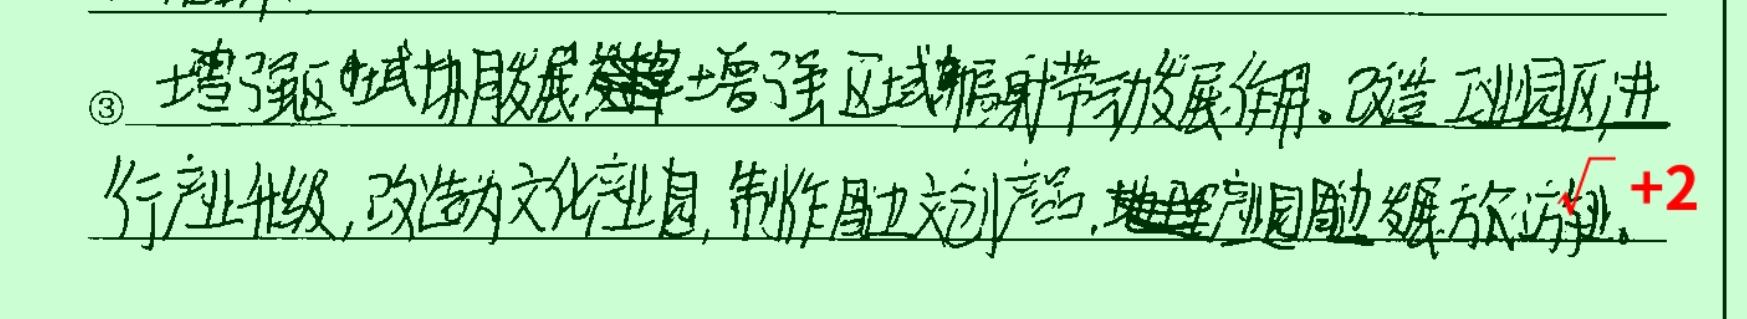 ③ 增强区域协同发展增强区域辐射带动发展作用。改造工业园区,进
行产业升级,改造为文化产业园,制作周边文创产品,产业园周边发展旅游业。
+2